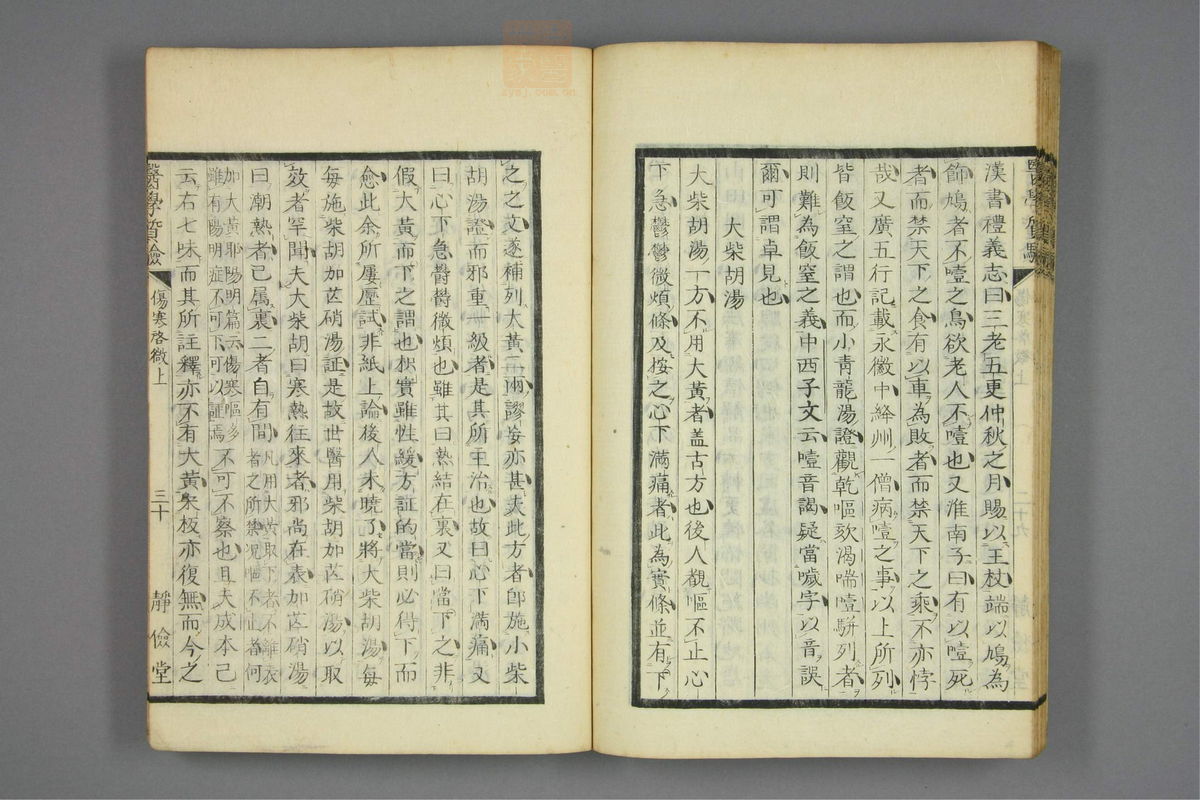 漢書禮義志曰三老五更仲秋之月賜以王杖端以鳩為
飾鳩者不噎之鳥欲老人不噎也又淮南子曰有以噎死
者而禁天下之食有以車為敗者而禁天下之乘不亦悖
哉又廣五行記載永徽中絳州一僧病噎之事以上所列
皆飯窒之謂也而小青龍湯證觀乾嘔欬渴喘噎駢列者
則難為飯窒之義中西子文云噎音謁疑當噦字以音誤
爾可謂卓見也
大柴胡湯
大柴胡湯一方不用大黃者盖古方也後人觀嘔不止心
下急鬱鬱微煩條及按之心下滿痛者此為實條並有下
醫學質驗
傷寒啓微上
二十九
之之文遂補列大黃二兩謬妄亦甚夫此方者卽施小柴
胡湯證而邪重一級者是其所主治也故曰心下滿痛又
曰心下急鬱鬱微煩也雖其曰熱結在裏又曰當下之非
假大黃而下之謂也枳實雖性緩方証的當則必得下而
愈此余所屢歷試非紙上論後人未曉了將大柴胡湯每
每施柴胡加芒硝湯証是故世醫用柴胡加芒硝湯以取
效者罕聞夫大柴胡曰寒熱往來者邪尚在表加芒硝湯
曰潮熱者已属裏二者自有間凡用大黃取下者不離表
者之所禁况嘔不止者何
加大黃耶陽明篇云傷寒嘔多
雖有陽明症不可下可以証焉不可不察也且夫成本已
云右七味而其所註釋亦不有大黃宋板亦復無而今之
醫學質驗
傷寒啓微上
三十
靜儉堂